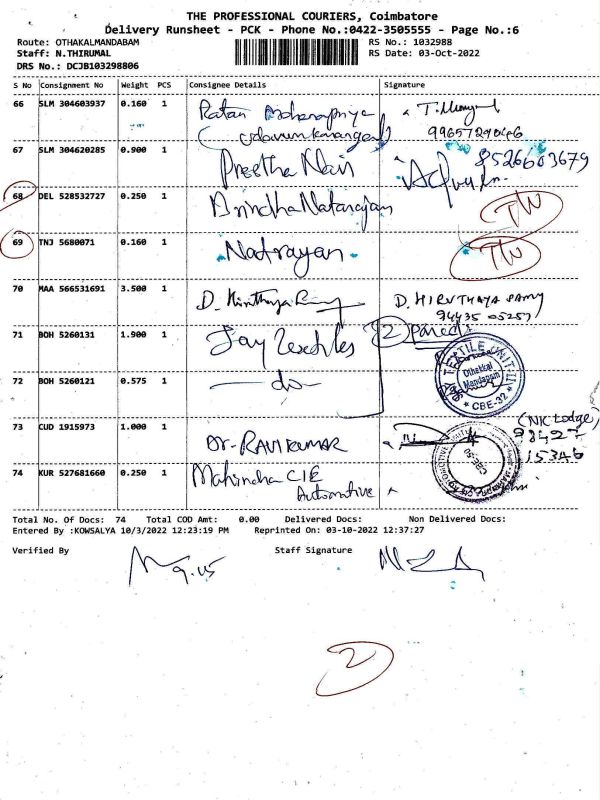 THE PROFESSIONAL COURIERS, Coimbatore
Delivery Runsheet - PCK - Phone No.:0422-3505555 - Page No.:6
Route: OTHAKALMANDABAM
RS No.: 1032988
Staff: N.THIRUMAL
RS Date: 03-Oct-2022
DRS No.: DCJB103298806
S No Consignment No Weight PCS Consignee Details Signature
66 SLM 304603937 0.160 1 Ratan
67 SLM 304620285 0.900 1 Preetha Nair 8526603679
68 DEL 528532727 0.250 1 Arindha Natarajan
69 TNJ 5680071 0.160 1 Natrayan
70 MAA 566531691 3.500 1 D. D. HIRUTHAYA SAMY
94435 05257
71 BOH 5260131 1.900 1 Jay Textiles 2
TEXTILE UNIT-II
Othakkal
Mandapam
* CBE-32 *
72 BOH 5260121 0.575 1 - do -
73 CUD 1915973 1.000 1 Dr. RAVIKUMAR
(NK Lodge)
98427
15346
74 KUR 527681660 0.250 1 Mahindra CIE
Automotive
Total No. Of Docs: 74 Total COD Amt: 0.00 Delivered Docs: Non Delivered Docs:
Entered By :KOWSALYA 10/3/2022 12:23:19 PM Reprinted On: 03-10-2022 12:37:27
Verified By Staff Signature
9.45
2